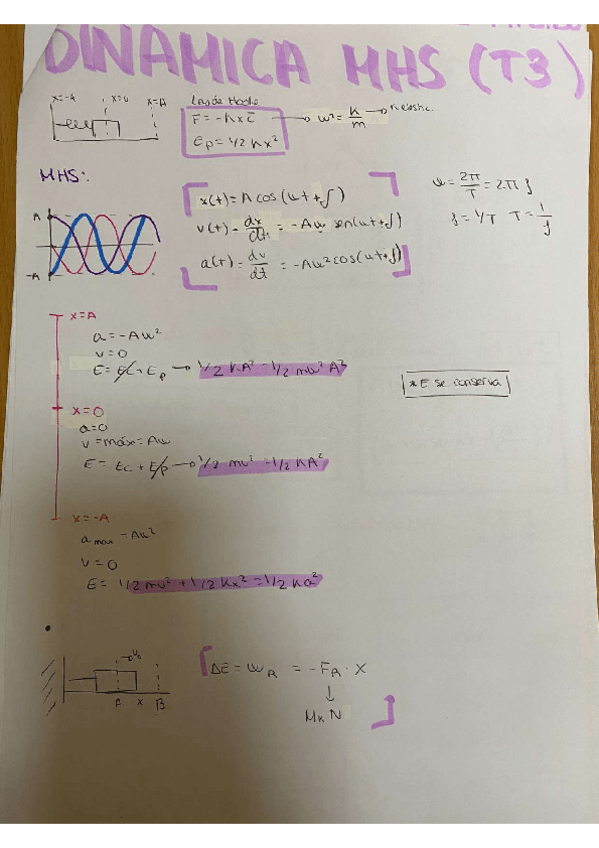 DINAMICA MHS (T3)
x=-A x=0 x=A
Ley de Hooke
F = -k x î → ω² = k/m → k elástic.
Ep = 1/2 k x²
MHS:
x(t) = A cos (ωt + φ)
v(t) = dx/dt = -Aω sen(ωt+φ)
a(t) = dv/dt = -Aω² cos(ωt+φ)
ω = 2π/T = 2π f
f = 1/T T = 1/f
A
-A
x=A
a = -Aω²
v = 0
E = Ec + Ep → 1/2 KA² = 1/2 mω² A²
* E se conserva
x = 0
a = 0
v = máx = Aω
E = Ec + Ep → 1/2 mv² = 1/2 KA²
x = -A
a max = Aω²
v = 0
E = 1/2 mv² + 1/2 Kx² = 1/2 Ka²
A x B
ΔE = WR = -FR · x
↓
Mk N